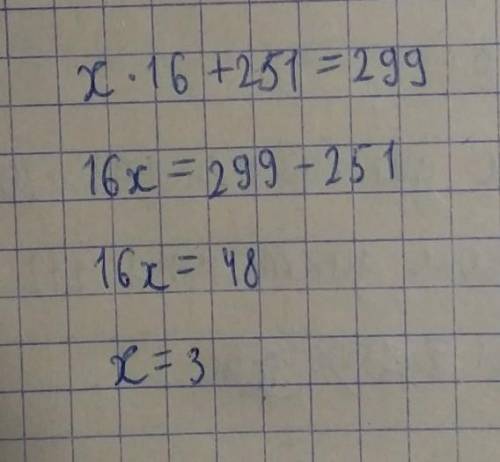 x · 16 + 251 = 299
16x = 299 - 251
16x = 48
x = 3